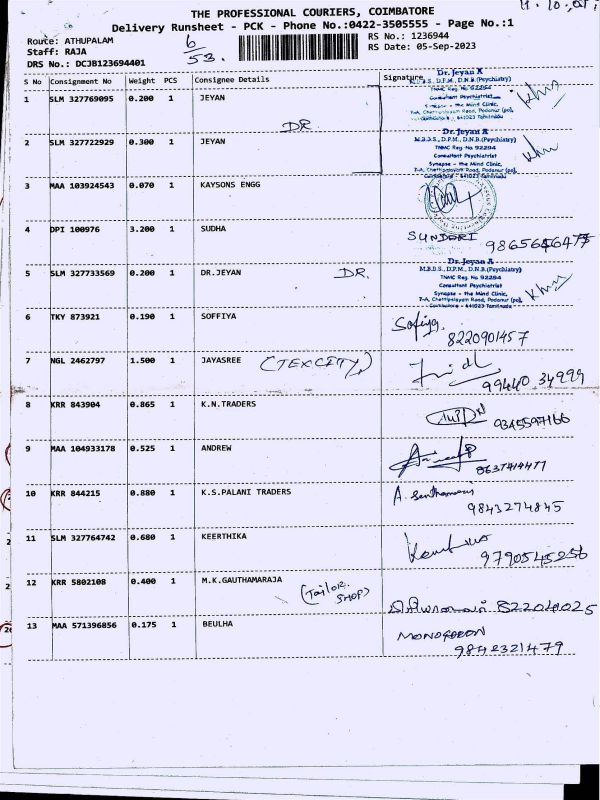 THE PROFESSIONAL COURIERS, COIMBATORE
Delivery Runsheet - PCK - Phone No.:0422-3505555 - Page No.:1
Route: ATHUPALAM 6 RS No.: 1236944
Staff: RAJA 53. RS Date: 05-Sep-2023
DRS No.: DCJB123694401
S No Consignment No Weight PCS Consignee Details Signature
Dr. Jeyan
M.B.B.S., D.P.M., D.N.B.(Psychiatry)
TNMC Reg. No 92294
Consultant Psychiatrist
Synapse - the Mind Clinic,
7-A, Chettipalayam Road, Podanur (po),
Coimbatore - 641023 Tamilnadu
1 SLM 327769095 0.200 1 JEYAN
DR.
Dr. Jeyan
M.B.B.S., D.P.M., D.N.B.(Psychiatry)
TNMC Reg. No 92294
Consultant Psychiatrist
Synapse - the Mind Clinic,
7-A, Chettipalayam Road, Podanur (po),
Coimbatore - 641023 Tamilnadu
2 SLM 327722929 0.300 1 JEYAN
3 MAA 103924543 0.070 1 KAYSONS ENGG
4 DPI 100976 3.200 1 SUDHA
SUNDARI
Dr. Jeyan
M.B.B.S., D.P.M., D.N.B.(Psychiatry)
TNMC Reg. No 92294
Consultant Psychiatrist
Synapse - the Mind Clinic,
7-A, Chettipalayam Road, Podanur (po),
Coimbatore - 641023 Tamilnadu
5 SLM 327733569 0.200 1 DR.JEYAN DR.
6 TKY 873921 0.190 1 SOFFIYA Sofiya.
8220901457
7 NGL 2462797 1.500 1 JAYASREE (TEXCITY)
99440 34999
8 KRR 843904 0.865 1 K.N.TRADERS
9345597166
9 MAA 104933178 0.525 1 ANDREW
8637414477
10 KRR 844215 0.880 1 K.S.PALANI TRADERS
9843274845
11 SLM 327764742 0.680 1 KEERTHIKA
9790545256
12 KRR 5802108 0.400 1 M.K.GAUTHAMARAJA
(Tailor
SHOP)
13 MAA 571396856 0.175 1 BEULHA
9842321479